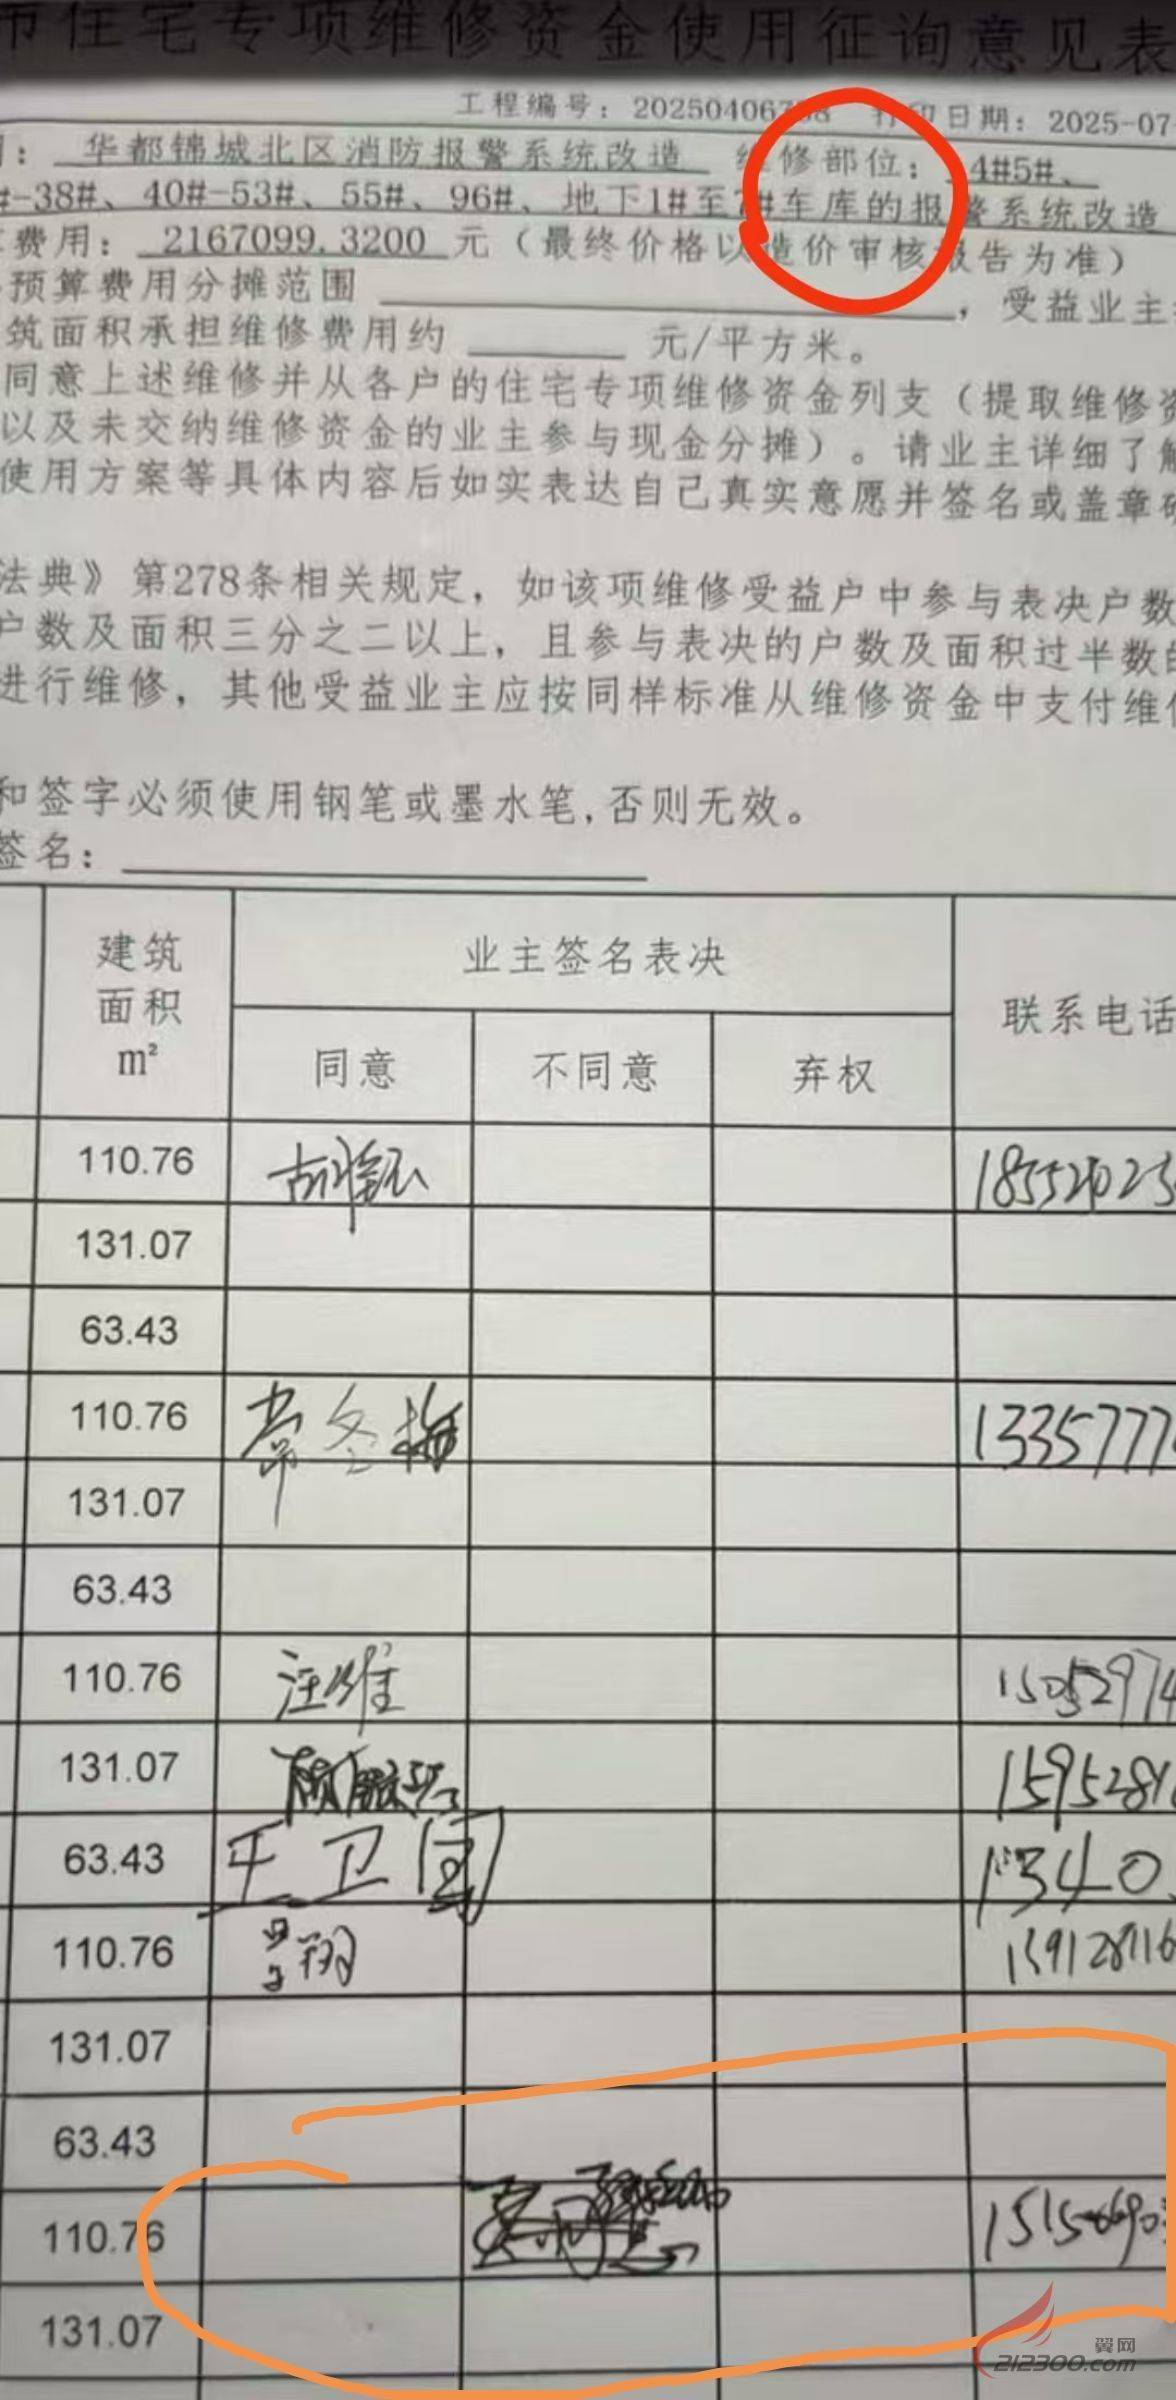 市住宅专项维修资金使用征询意见表
工程编号：20250406738 打印日期：2025-07-
：华都锦城北区消防报警系统改造 维修部位：4#5#、
#-38#、40#-53#、55#、96#、地下1#至7#车库的报警系统改造
费用：2167099.3200元（最终价格以造价审核报告为准）
预算费用分摊范围 ，受益业主
筑面积承担维修费用约 元/平方米。
同意上述维修并从各户的住宅专项维修资金列支（提取维修资
以及未交纳维修资金的业主参与现金分摊）。请业主详细了解
使用方案等具体内容后如实表达自己真实意愿并签名或盖章确
法典》第278条相关规定，如该项维修受益户中参与表决户数
户数及面积三分之二以上，且参与表决的户数及面积过半数的
进行维修，其他受益业主应按同样标准从维修资金中支付维修
和签字必须使用钢笔或墨水笔,否则无效。
签名：
建筑面积m² 业主签名表决 联系电话
同意 不同意 弃权
110.76 18552023
131.07
63.43
110.76 常冬梅 1335777
131.07
63.43
110.76 汪维 15052974
131.07 1595281
63.43 王卫国 1340
110.76 翔 159128916
131.07
63.43
110.76 不同意 15156690
131.07
翼网
212300.com